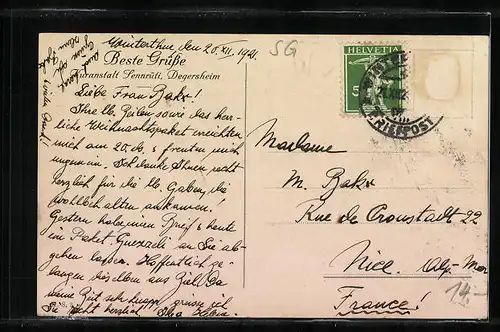 Winterthur, den 20. XII. 1921.
Beste Grüße
Kuranstalt Sennrüti, Degersheim
Liebe Frau Bakr!
Ihre lb. Zeilen sowie das herr-
liche Weihnachtspaket erreichten
mich am 20. ds. & freuten mich
ungemein. Ich danke Ihnen recht
herzlich für die lb. Gaben, die
wohlbehalten ankamen!
Gestern habe einen Brief & heute
ein Paket Guezli an Sie ab-
gehen lassen. Hoffentlich ge-
langen dieselben ans Ziel! Da
meine Zeit sehr knapp, grüsse ich
Sie recht herzlich Ihre
SG
HELVETIA
5
BRIEFPOST
Madame
M. Bakr
Rue de Cronstadt 22
Nice. Alp-Mar.
France!
14.-